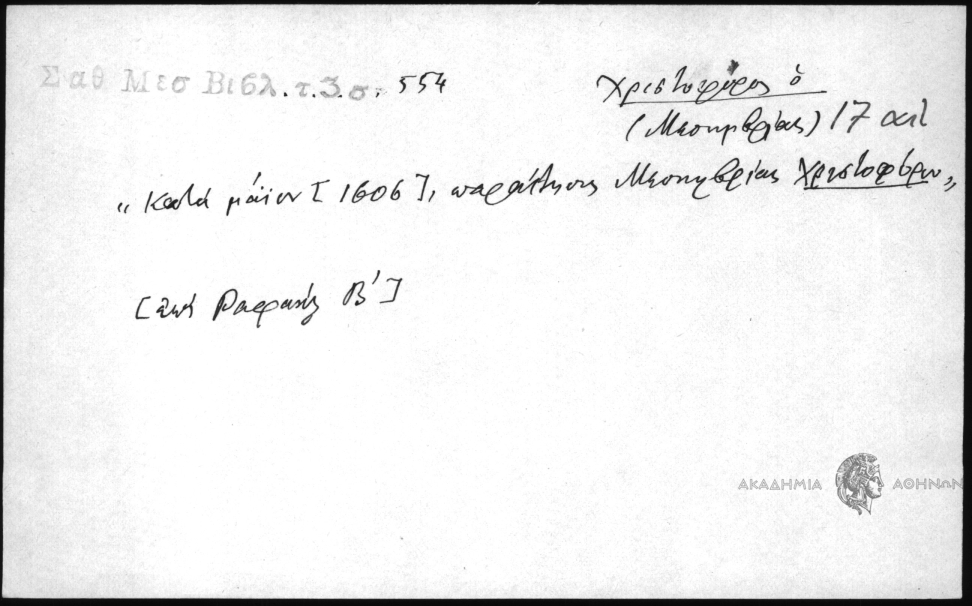 Σαθ Μεσ Βιβλ. τ. 3. σ. 554
Χριστοφόρος ὁ
(Μεσημβρίας) 17 αἰ
„ Κατά μάϊον [1606], παραίτησις Μεσημβρίας Χριστοφόρου „
[ἐπί Ραφαήλ Β']
ΑΚΑΔΗΜΙΑ ΑΘΗΝΩΝ